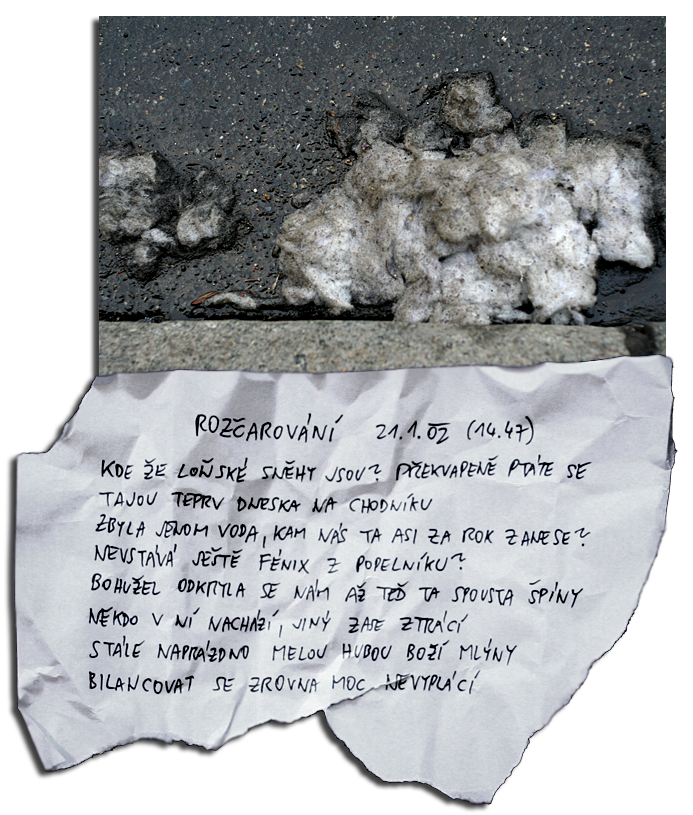 ROZČAROVÁNÍ 21.1.02 (14.47)
KDE ŽE LOŇSKÉ SNĚHY JSOU? PŘEKVAPENĚ PTÁTE SE
TAJOU TEPRV DNESKA NA CHODNÍKU
ZBYLA JENOM VODA, KAM NÁS TA ASI ZA ROK ZANESE?
NEVSTÁVÁ JEŠTĚ FÉNIX Z POPELNÍKU?
BOHUŽEL ODKRYLA SE NÁM AŽ TEĎ TA SPOUSTA ŠPÍNY
NĚKDO V NÍ NACHÁZÍ, JINÝ ZASE ZTRÁCÍ
STÁLE NAPRÁZDNO MELOU HUBOU BOŽÍ MLÝNY
BILANCOVAT SE ZROVNA MOC NEVYPLÁCÍ